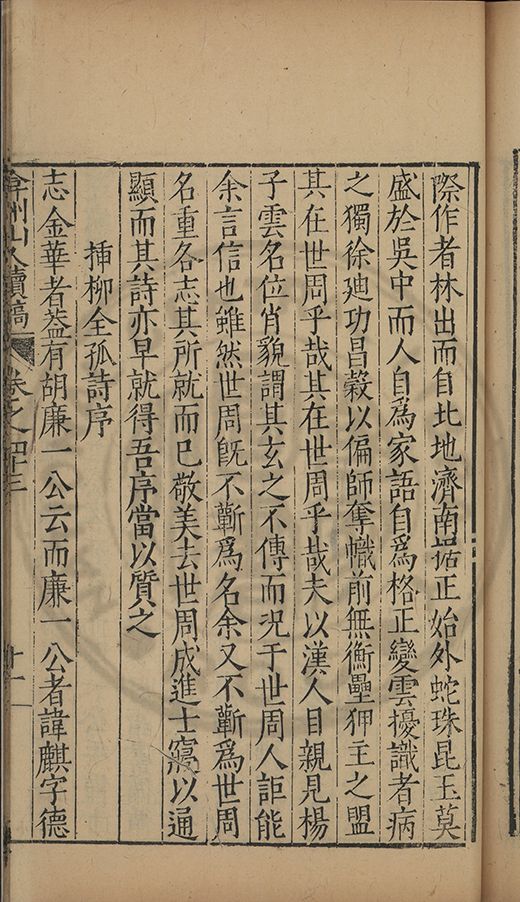 際作者林出而自北地濟南據正始外蛇珠昆玉莫
盛於吳中而人自為家語自為格正變雲擾識者病
之獨徐廸功昌穀以偏師奪幟前無衡壘狎主之盟
其在世周乎哉其在世周乎哉夫以漢人目親見楊
子雲名位肖貌謂其玄之不傳而況于世周人詎能
余言信也雖然世周既不蘄為名余又不蘄為世周
名重各志其所就而已敬美去世周成進士寫以通
顯而其詩亦早就得吾序當以質之
挿柳全孤詩序
志金華者葢有胡廉一公云而廉一公者諱麒字德
弇州山人續稿 卷之四十三 十一